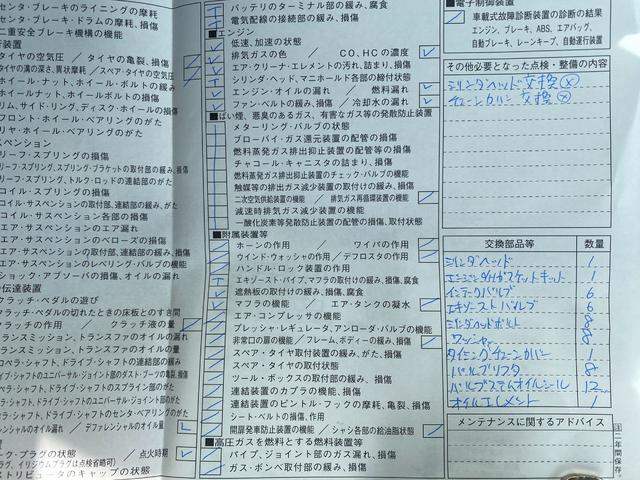 センタ・ブレーキのライニングの摩耗
センタ・ブレーキ・ドラムの摩耗、損傷
二重安全ブレーキ機構の機能
行装置
タイヤの空気圧 / タイヤの亀裂、損傷
タイヤの溝の深さ、異状摩耗 / スペア・タイヤの空気圧
ホイール・ナット、ホイール・ボルトの緩み
ホイールナット、ホイールボルトの損傷
リム、サイド・リング、ディスク・ホイールの損傷
フロント・ホイール・ベアリングのがた
リヤ・ホイール・ベアリングのがた
スペンション
リーフ・スプリングの損傷
リーフ・スプリング、スプリング・ブラケットの取付部の緩み、損傷
リーフ・スプリング、トルク・ロッドの連結部のがた
コイル・スプリングの損傷
コイル・サスペンションの取付部、連結部の緩み、がた
コイル・サスペンション各部の損傷
エア・サスペンションのエア漏れ
エア・サスペンションのベローズの損傷
エア・サスペンションの取付部、連結部の緩み、損傷
エア・サスペンションのレベリング・バルブの機能
ショック・アブソーバの損傷、オイルの漏れ
の伝達装置
クラッチ・ペダルの遊び
クラッチ・ペダルの切れたときの床板とのすき間
クラッチの作用 / クラッチ液の量
トランスミッション、トランスファのオイルの漏れ
トランスミッション、トランスファのオイルの量
プロペラ・シャフト、ドライブ・シャフトの連結部の緩み
ドライブ・シャフトのユニバーサル・ジョイント部のダスト・ブーツの亀裂、損傷
ペラ・シャフト、ドライブ・シャフトのスプライン部のがた
プロペラ・シャフト、ドライブ・シャフトのユニバーサル・ジョイント部のがた
ペラ・シャフト、ドライブ・シャフトのセンタ・ベアリングのがた
レンシャルのオイル漏れ / デファレンシャルのオイル量
ーク・プラグの状態 / 点火時期
プラグ、イリジウムプラグは点検省略可)
ストリビュータのキャップの状態
バッテリのターミナル部の緩み、腐食
電気配線の接続部の緩み、損傷
■エンジン
低速、加速の状態
排気ガスの色 / CO、HCの濃度
エア・クリーナ・エレメントの汚れ、詰まり、損傷
シリンダ・ヘッド、マニホールド各部の締付状態
エンジン・オイルの漏れ / 燃料漏れ
ファン・ベルトの緩み、損傷 / 冷却水の漏れ
■ばい煙、悪臭のあるガス、有害なガス等の発散防止装置
メターリング・バルブの状態
ブローバイ・ガス還元装置の配管の損傷
燃料蒸発ガス排出抑止装置の配管等の損傷
チャコール・キャニスタの詰まり、損傷
燃料蒸発ガス排出抑止装置のチェック・バルブの機能
触媒等の排出ガス減少装置の取付の緩み、損傷
二次空気供給装置の機能 / 排気ガス再循環装置の機能
減速時排気ガス減少装置の機能
一酸化炭素等発散防止装置の配管の損傷、取付状態
■附属装置等
ホーンの作用 / ワイパの作用
ウインド・ウォッシャの作用 / デフロスタの作用
ハンドル・ロック装置の作用
エキゾースト・パイプ、マフラの取付けの緩み、損傷、腐食
遮熱板の取付けの緩み、損傷、腐食
マフラの機能 / エア・タンクの凝水
エア・コンプレッサの機能
プレッシャ・レギュレータ、アンローダ・バルブの機能
非常口の扉の機能 / フレーム、ボディーの緩み、損傷
スペア・タイヤ取付装置の緩み、がた、損傷
スペア・タイヤの取付状態
ツール・ボックスの取付部の緩み、損傷
連結装置のカプラの機能、損傷
連結装置のピントル・フックの摩耗、亀裂、損傷
シート・ベルトの損傷、作用
開扉発車防止装置の機能 / シャシ各部の給油脂状態
■高圧ガスを燃料とする燃料装置等
パイプ、ジョイント部のガス漏れ、損傷
ガス・ボンベ取付部の緩み、損傷
■電子制御装置
車載式故障診断装置の診断の結果
エンジン、ブレーキ、ABS、エアバッグ、
自動ブレーキ、レーンキープ、自動運行装置
その他必要となった点検・整備の内容
シリンダヘッド交換
チェーンカバー交換
交換部品等 数量
シリンダヘッド 1
エンジンガスケットキット 1
インテークバルブ 6
エキゾーストバルブ 6
シリンダヘッドボルト 8
ワッシャー 8
タイミングチェーンカバー 1
バルブリフタ 8
バルブステムオイルシール 12
オイルエレメント 1
メンテナンスに関するアドバイス
二年間保存